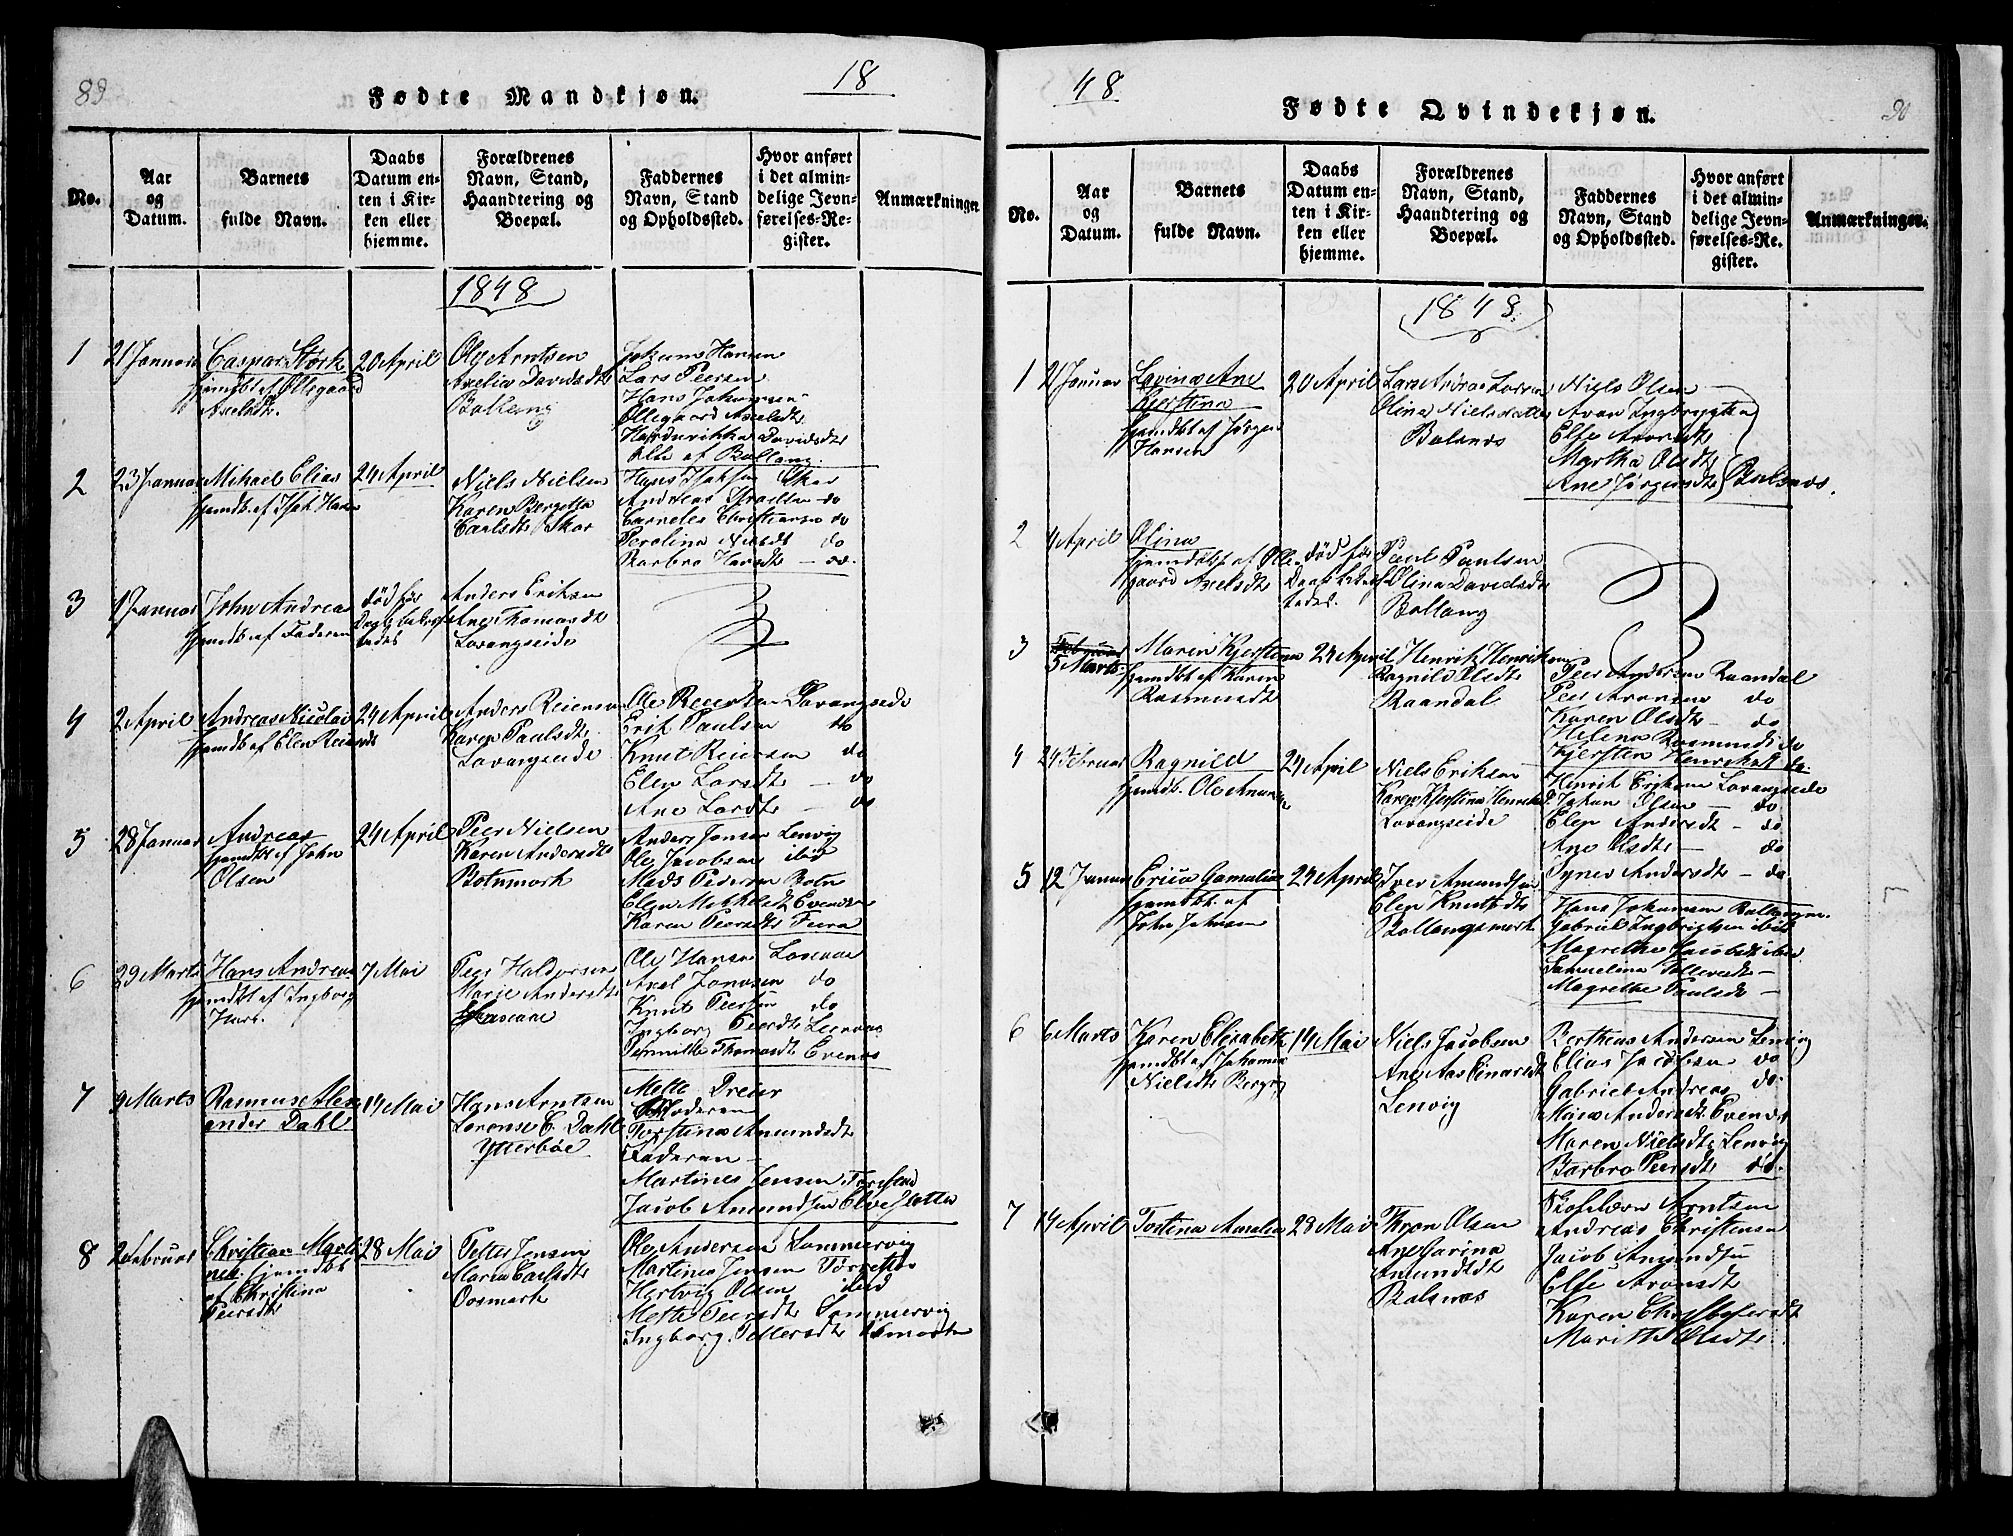 89
Fødte Mandkjøn.
18
No.
Aar
og
Datum.
Barnets
fulde Navn.
Daabs
Datum en-
ten i Kir-
ken eller
hjemme.
Forældrenes
Navn, Stand,
Haandtering og
Boepæl.
Faddernes
Navn, Stand
og Opholdssted.
Hvor anført
i det almin-
delige Jevn-
førelses-Re-
gister.
Anmærkninger
1848
1
21 Januar
Caspar Stork
hjemdbt af Ollegaard
Axelsdt.
20 April
Ole Arntsen
Axelia Davidsdt
Ballang
Johan Hansen
Lars Peersen
Hans Johansen
Ollegaard Axelsdt
Davidsdt
alle af Ballang.
2
23 Januar
Mikael Elias
hjemdt. af Isak Hans
24 April
Niels Nielsen
Karen Bergetta
Carlsdt Skar
Hans Isaksen Skar
Andreas Isralsen do
Carneles Christiansen do
Perolina Nielsdt do
Barbro Hansdt — do.
3
1 Januar
John Andreas
hjemdt af Faderen
død før
Daab bekræf
tedes
Anders Eriksen
Ane Thomasdt
Lavangseide
4
2 April
Andreas Nicolai
hjemdt af Elen Reiersdt
24 April
Anders Reiersen
Karen Paulsdt
Lavangseide
Ole Reiersen Lavangseide
Erik Paulsen do
Knut Reiersen do
Elen Larsdt — do
Ane Larsdt — do
5
28 Januar
Andreas
hjemdbt af John
Olsen
24 April
Peer Nielsen
Karen Andersdt
Botnmark
Anders Jonsen Lenvig
Ole Jacobsen ibid
Mads Pedersen Botn
Elen Mikkelsdt Evends
Karen Peersdt
6
29 Marts
Hans Andreas
hjemdbt af Ingborg
Hans.
7 Mai
Peer Haldorsen
Marie Andersdt
Ole Hansen
Axel Jonasen do
Knut Peersen do
Ingborg Peersdt
Pernille Thomasdt Evenes
7
9 Marts
Rasmus Alex
ander Dahl
14 Mai
Hans Arntsen
Lorense C. Dahl
Ytterbøe
Mette Dreier
Moderen
Torstina Amundsdt
Faderen —
Martines Jensen
Jacob Amundsen Elveslette
8
2 Februar
Christian Marti
nes hjemdbt
af Christina
Peersdt
28 Mai
Petter Jensen
Maren Carlsdt
Oosmark
Ole Andersen Sommervig
Martines Jensen
Hartvig Olsen ibid
Mette Peersdt Sommervig
Ingborg Pettersdt
48
Fødte Qvindekjøn.
90
No.
Aar
og
Datum.
Barnets
fulde Navn.
Daabs
Datum en-
ten i Kir-
ken eller
hjemme.
Forældrenes
Navn, Stand,
Haandtering og
Boepæl.
Faddernes
Navn, Stand
og Opholdssted.
Hvor anført
i det almin-
delige Jevn-
førelses-Re-
gister.
Anmærkninger.
1848.
1
2 Januar
Lovina Ane
Kierstina
hjemdbt af Jørgen
Hansen
20 April
Lars Andreas Larsen
Olina Nielsdatter
Balsnes
Niels Olsen
Aron Ingbrygtsen
Else Aronsdt
Martha Olsdt
Ane Jørgensdt Balsnes.
2
4 April
Olina
hjemdbt af Olle-
gaard Axelsdt
død før
Daab bekræf
tedes.
Paul Paulsen
Olina Davidsdt
Ballang
3
Februar
5 Marts
Maren Kjerstina
hjemdbt af Karen
Rasmusdt
24 April
Henrik Henriksen
Ragnild Olsdt
Raandal
Peer Andersen Raandal
Peer Aronsen do
Karen Olsdt — do
Helena Rasmusdt do
Kjersten Henriksdt do
4
24 Februar
Ragnild
hjemdt. Ole
24 April
Niels Eriksen
Karen Kjerstina Henriks
Lavangseide
Henrik Eriksen Lavangseide
Johan Olsen — do
Elen Andersdt — do
Ane Olsdt — do
Synev Andersdt — do
5
12 Januar
Erica Gamaline
hjemdbt. af
John Johnsen
24 April
Iver Amundsen
Elen Knutsdt
Ballangsmark
Hans Johansen Ballangen
Gabriel Ingbrigtsen ibid
Magrethe Jacobsdt ibid
Samueline Tollevsdt —
Magrethe Paulsdt —
6
6 Marts
Karen Elisabeth
hjemdbt af Johanna
Nielsdt Berger
14 Mai
Niels Jacobsen
Ane Aas Einarsdt
Lenvig
Bertheus Andersen Lenvig
Elias Jacobsen do
Gabriel Andreas do
Maren Andersdt Evenes
Maren Nielsdt Lenvig
Barbro Peersdt do.
7
14 April
Tostina Amalia
28 Mai
Thron Olsen
Ane Carina
Amundsdt
Balsnes
Arntsen
Andreas Christensen
Jacob Amundsen
Else Aronsdt
Karen Christofersdt
Marith Olsdt